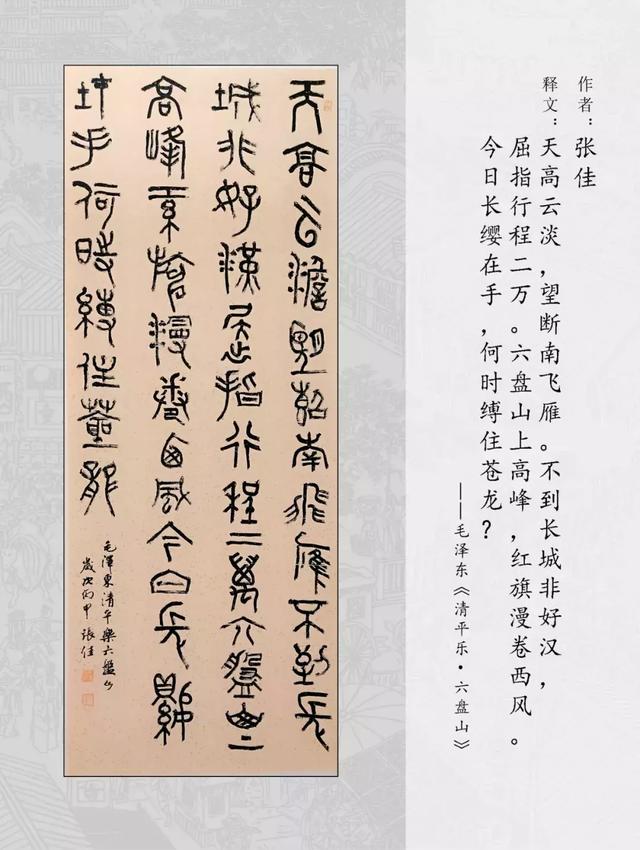 作者：张佳
释文：天高云淡，望断南飞雁。不到长城非好汉，
屈指行程二万。六盘山上高峰，红旗漫卷西风。
今日长缨在手，何时缚住苍龙？
——毛泽东《清平乐·六盘山》
天高云澹望斷南飛雁不到長
城非好漢屈指行程二萬六盤山上
高峰紅旗漫卷西風今日長纓
在手何時縛住蒼龍
毛澤東清平樂六盤山
歲次丙申張佳